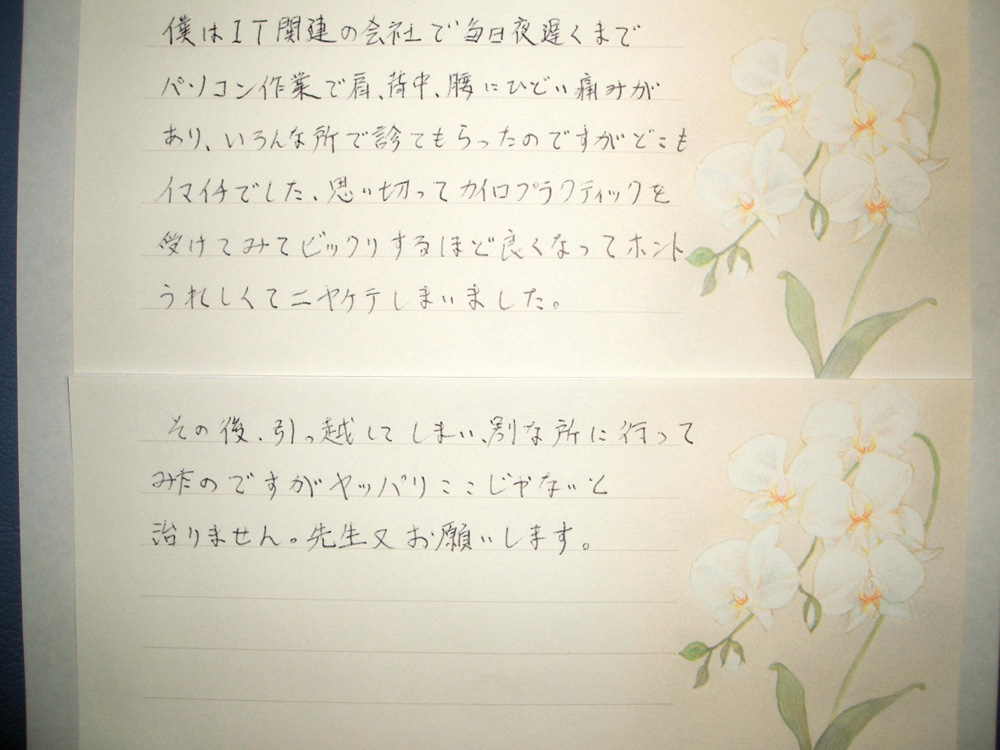 僕はIT関連の会社で毎日夜遅くまで
パソコン作業で肩、背中、腰にひどい痛みが
あり、いろんな所で診てもらったのですがどこも
イマイチでした、思い切ってカイロプラクティックを
受けてみてビックリするほど良くなってホント
うれしくてニヤケテしまいました。
その後、引っ越してしまい、別な所に行って
みたのですがヤッパリここじゃないと
治りません。先生又お願いします。